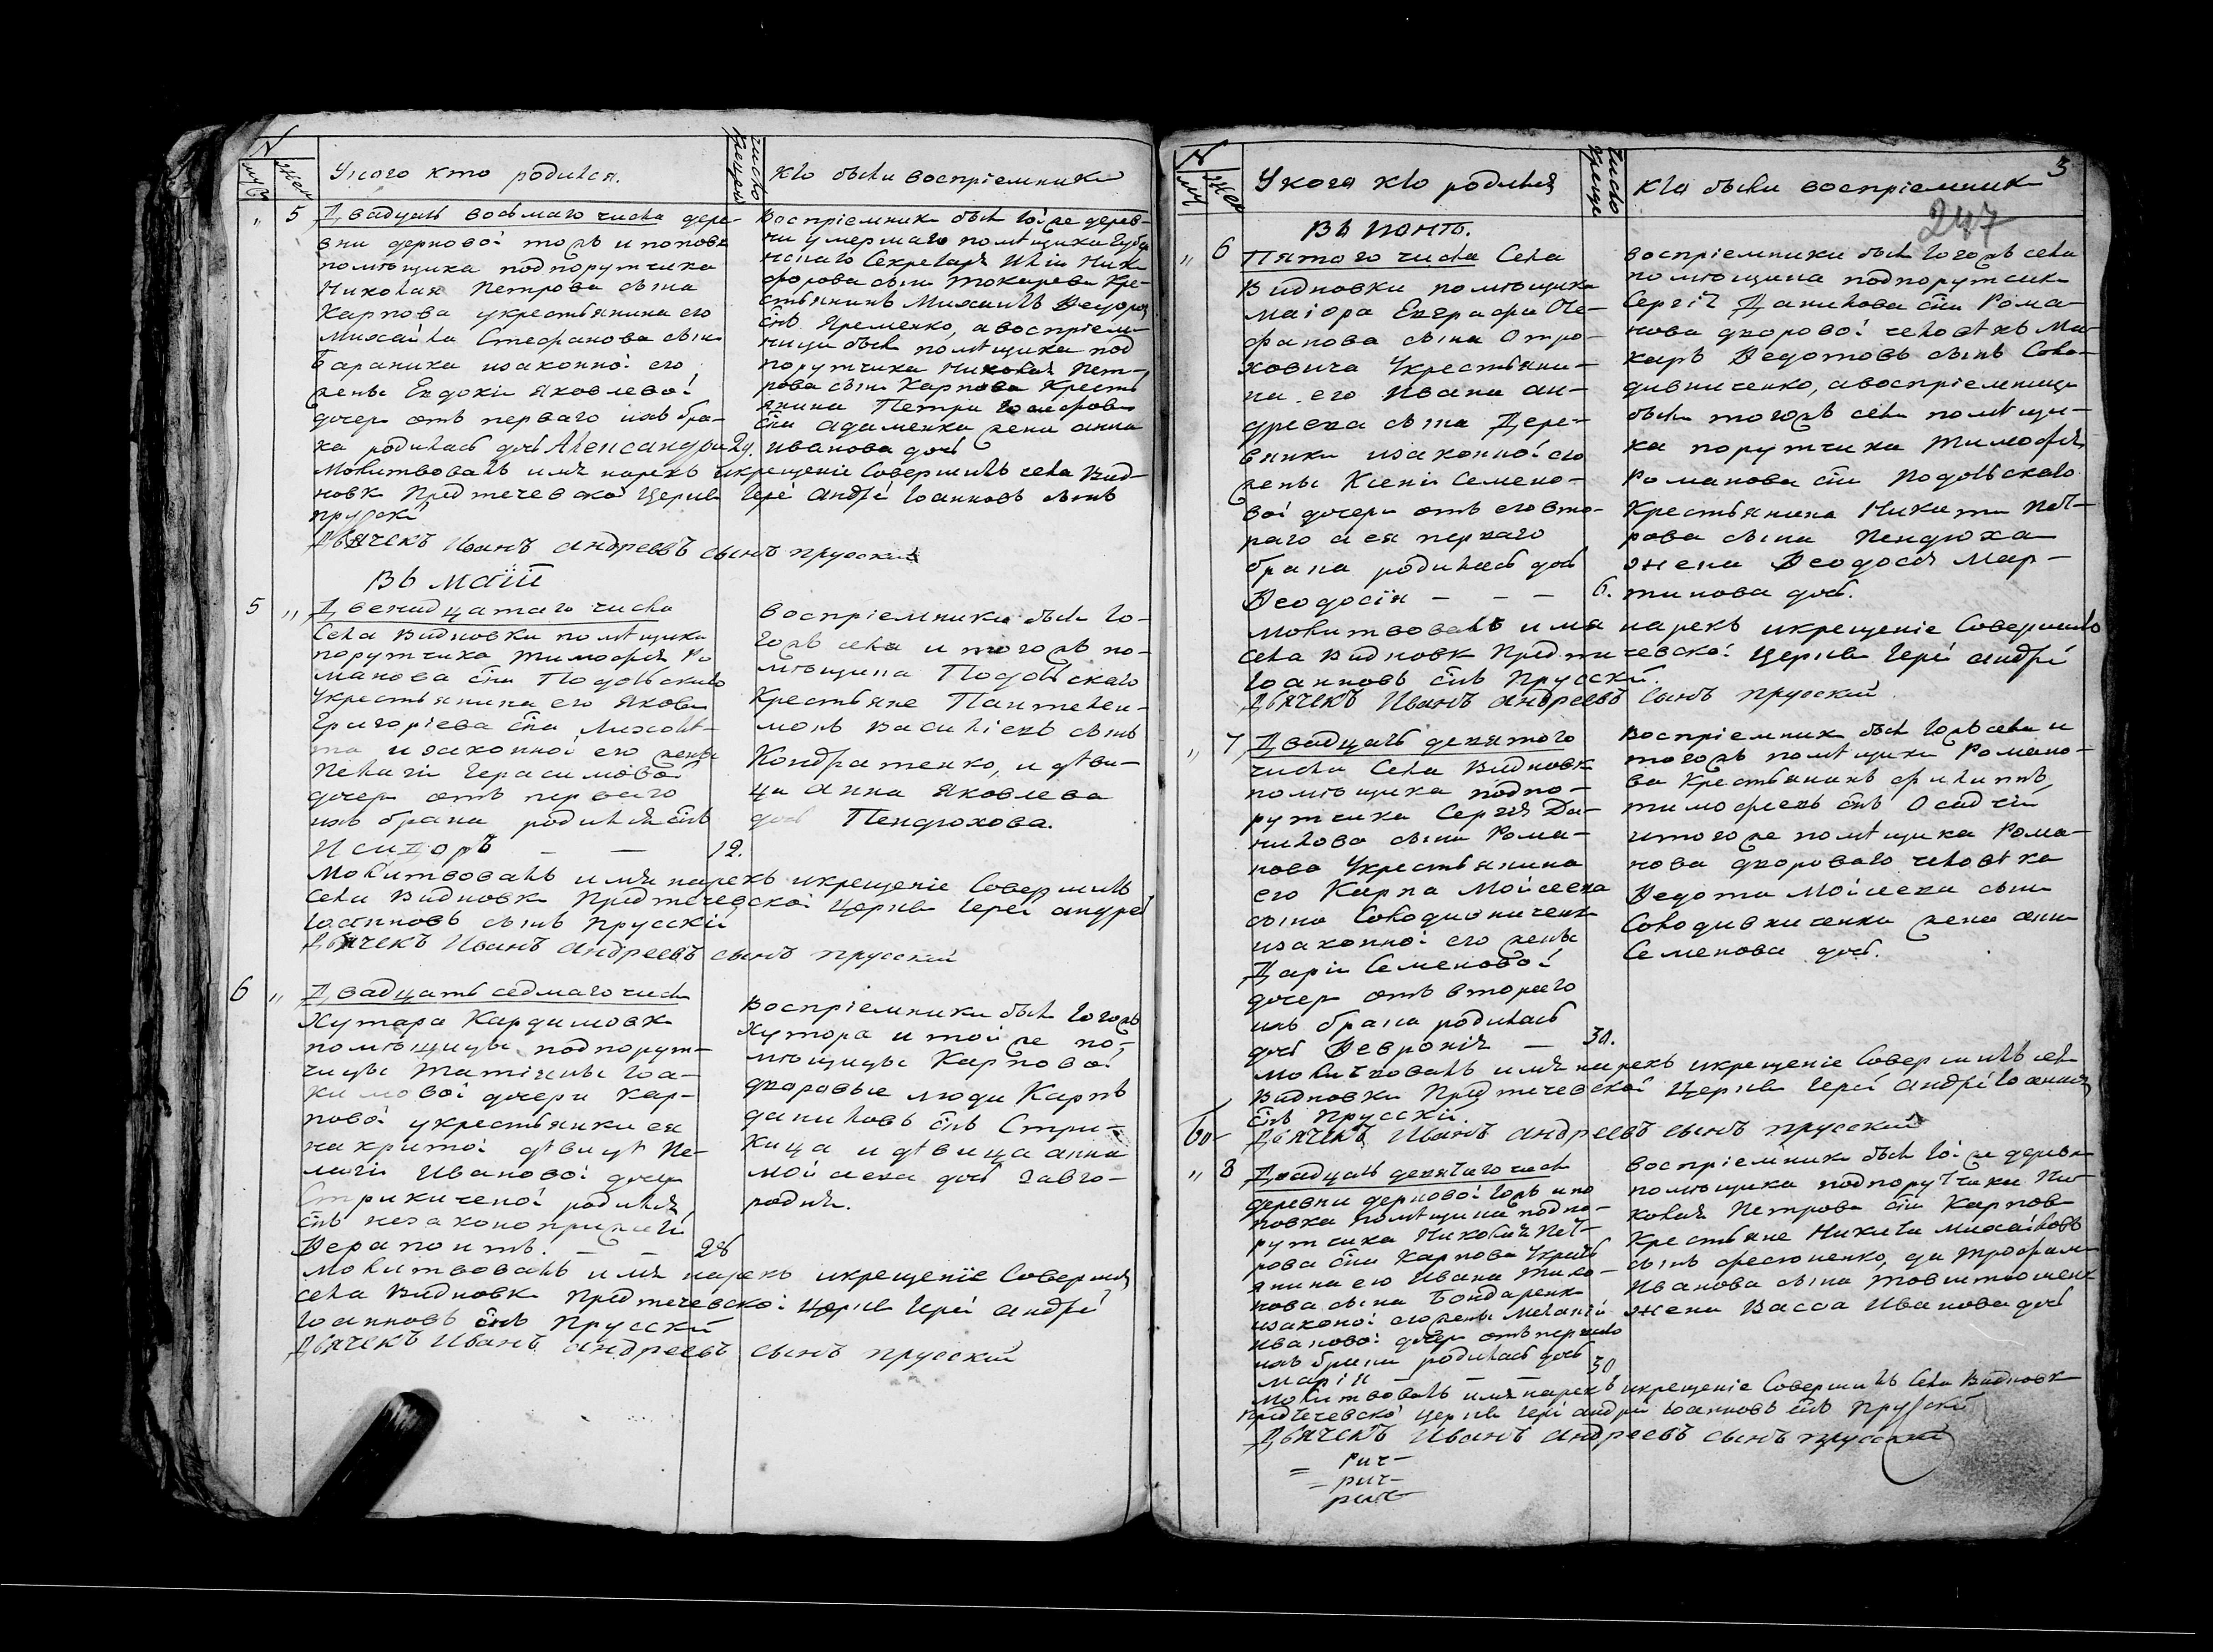 №
муж
жен
У кого кто родился.
число крещен
Кто были воспріемники
„ 5 Двадцать восьмаго числа дере-
вни дерновой тожъ и поповк
помѣщика подпорутчика
Николая Петрова сына
Карпова укрестьянина его
Михайла Стефанова сына
Бараника изаконной его
жены Евдокіи Яковлевой
дочери отъ перваго ихъ бра-
ка родилась дочь Александра 29.
Воспріемники были тойже дерев-
ни умершаго помѣщика Губер
нскаго Секретаря Ильи Ники
форова сына Токарева Кре-
стьянинъ Михаилъ Ѳедоровъ
сынъ Яременко, а воспріем-
ница была помѣщика под
порутчика Николая Пет-
рова сына Карпова крестья
янина Петра
сына Адаменка жена анна
иванова дочь
Молитвовалъ имя нарекъ икрещеніе Совершилъ села Вид-
новк Предтечевской Церкви Іерей Андрей Іоанновъ сынъ
прусскій
Дьячекъ Иванъ андреевъ сынъ прусскій
Въ маіи
5 „ Двенадцатаго числа
Села Видновки помѣщика
порутчика Тимофея Ро
манова сына Подольскаго
укрестьянина его Якова
Григоріева сына
изаконной его жены
Пелагіи Герасимовой
дочери отъ перваго
ихъ брака родился сынъ
Исидоръ — — 12.
Воспріемники были то-
гожъ села и тогожъ по-
мѣщика Подольскаго
Крестьяне Пантелеи-
монъ Василіевъ сынъ
Кондратенко, и дѣви-
ца Анна Яковлева
дочь Пендюхова.
Молитвовалъ имя нарекъ икрещеніе Совершилъ
села Видновк Предтечевской Церкви Іерей андрей
Іоанновъ сынъ Прусскій
Дьячекъ Иванъ андреевъ сынъ прусскій
6 „ Двадцать седмаго числа
Хутара Кардимовк
помѣщицы подпорут-
чицы Татіяны Іоа-
кимовой дочери Кар-
повой укрестьянки ея
накритой дѣвицы Пе-
лагіи Ивановой дочери
Стрикиченой родился
сынъ незаконоприжитій
Ѳерапонтъ. — — 28
Воспріемники были тогожъ
Хутора и тойже по-
мѣщицы Карповой
дворовые люди Карпъ
даниловъ сынъ Стри-
кица и дѣвица анна
Мойсеева дочь Завго-
родня.
Молитвовалъ имя нарекъ икрещеніе Совершилъ
села Видновк Предтечевской Церкви Іерей андрей
Іоанновъ сынъ Прусскій
Дьячекъ Иванъ андреевъ сынъ прусскій
№
му
жен
У кого кто родился
число креще
Кто были воспріемник
3
247
Въ іюнѣ.
„ 6 Пятого числа Села
Видновки помѣщика
маіора Евграфа Сте-
фанова сына Отро-
ховича Укрестьяни-
на его Ивана ан-
дреева сына Дере-
вянки изаконной его
жены Ксеніи Семено-
вой дочери отъ его вто-
раго а ея перваго
брака родилась дочь
Ѳеодосія — — — 6.
воспріемники были тогожъ села
помѣщика подпорутчик
Сергія Данилова сына Рома-
нова дворовой человѣкъ Ма-
каръ Ѳедотовъ сынъ Соло-
дивниченко, авоспріемница
была тогожъ села помѣщи-
ка порутчика Тимофея
Романова сына Подольскаго
Крестьянина Никиты Пет-
рова сына Пендюха
жена Ѳеодосія Мар-
тинова дочь.
Молитвовалъ имя нарекъ икрещеніе Совершилъ
Села Видновк Предтичевской Церкви Іерей андрей
Іоанновъ сынъ Прусскій.
Дьячекъ Иванъ андреевъ сынъ прусский
„ 7 Двадцать девятого
числа Села Видновк
помѣщика подпо-
рутчика Сергія Да-
нилова сына Рома-
нова Укрестьянина
его Карпа Мойсеева
сына Солодивниченк
изаконной его жены
Даріи Семеновой
дочери отъ второго
ихъ брака родилась
дочь Ѳевронія — 30.
Воспріемник были тожъ села и
тогожъ помѣщика Романо-
ва Крестьянинъ филиппъ
тимофеевъ сынъ Осадчій
итогоже помѣщика Рома-
нова двороваго человѣка
Ѳедота Мойсеева сына
Солодивниченка жена анна
Семенова дочь.
Молитвовалъ имя нарекъ икрещеніе Совершилъ села
Видновки Предтечевской Церкви Іерей андрей Іоанновъ
сынъ Прусскій
Дьячекъ Иванъ андреевъ сынъ прусский
„ 8 Двадцать девятаго числа
деревни дерновой тожъ и по
повка помѣщика подпо-
рутчика Николая Пет-
рова сына Карпова Укресть
янина его Ивана Тихо-
нова сына Бондаренк
изаконой его жены Меланіи
ивановой дочери отъ перваго
ихъ брака родилась дочь
Марія — — — 30
воспріемник были тойже деревн
помѣщика подпорутчика Ни-
колая Петрова сына Карпов
Крестьяне Никита Михайловъ
сынъ фесюненко, да Трофима
Иванова сына
жена Васса Иванова дочь
Молитвовалъ имя нарекъ икрещеніе Совершилъ Села Видновк
Предтечевской Церкви Іерей андрей Іоанновъ сынъ Прусскій
Дьячекъ Иванъ андреевъ сынъ прусский